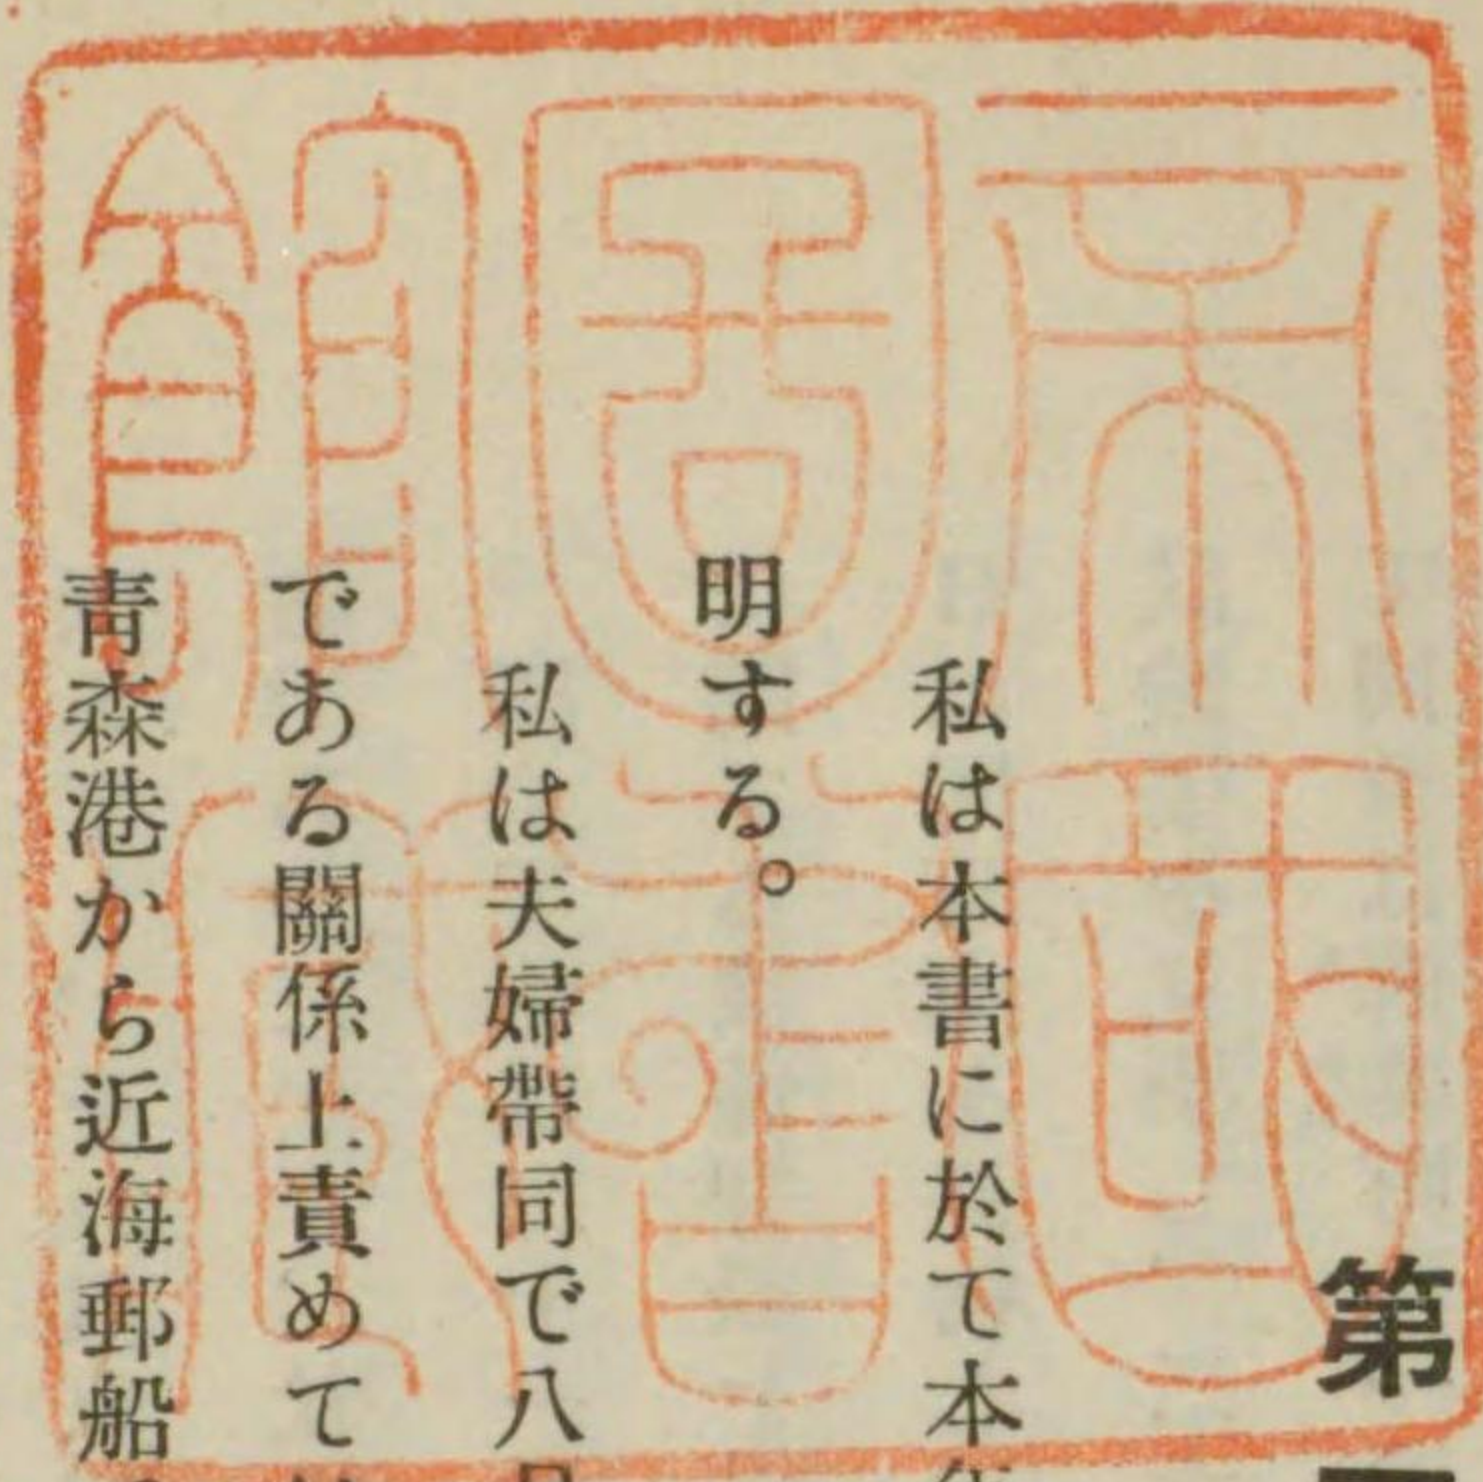 第
私は本書に於て本
明する。
私は夫婦帶同で八
である關係上責めて
靑森港から近海郵船
帝國
圖書
館藏